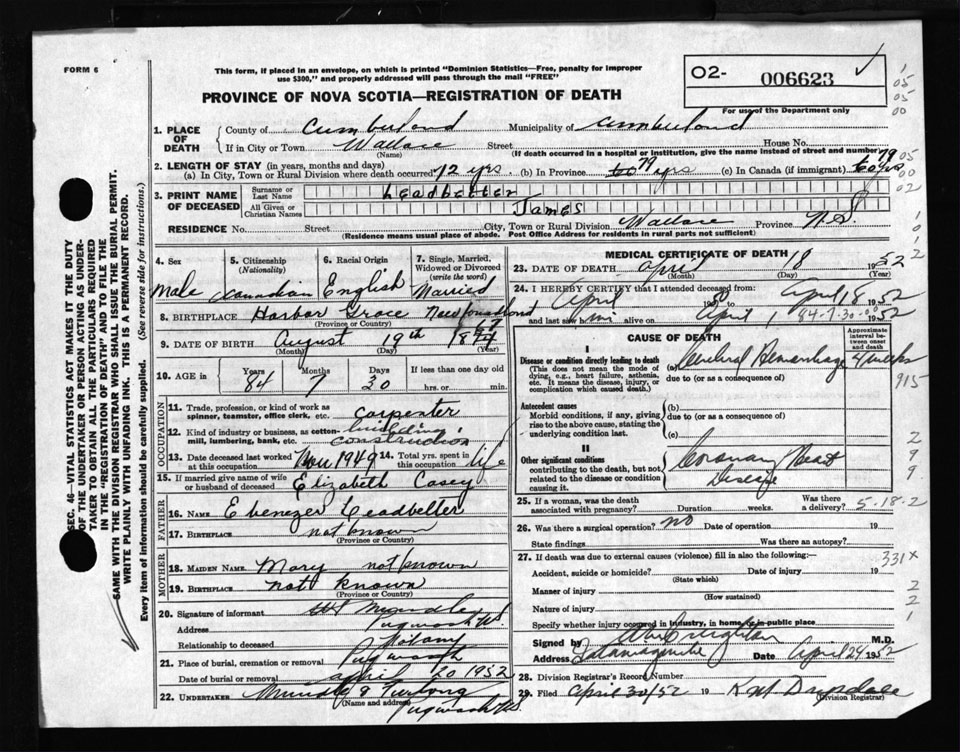 FORM 6
This form, if placed in an envelope, on which is printed "Dominion Statistics—Free, penalty for improper
use $300," and properly addressed will pass through the mail "FREE"
O2- 006623
PROVINCE OF NOVA SCOTIA—REGISTRATION OF DEATH
For use of the Department only
1. PLACE OF DEATH County of Cumberland Municipality of Cumberland
If in City or Town Wallace Street House No.
(Name) (If death occurred in a hospital or institution, give the name instead of street and number)
2. LENGTH OF STAY (in years, months and days)
(a) In City, Town or Rural Division where death occurred 12 yrs. (b) In Province 79 yrs (c) In Canada (if immigrant) 79
3. PRINT NAME OF DECEASED Surname or Last Name Leadbetter
All Given or Christian Names James
RESIDENCE No. Street City, Town or Rural Division Wallace Province N.S.
(Residence means usual place of abode. Post Office Address for residents in rural parts not sufficient)
SEC. 46—VITAL STATISTICS ACT MAKES IT THE DUTY
OF THE UNDERTAKER OR PERSON ACTING AS UNDER-
TAKER TO OBTAIN ALL THE PARTICULARS REQUIRED
IN THE "REGISTRATION OF DEATH" AND TO FILE THE
SAME WITH THE DIVISION REGISTRAR WHO SHALL ISSUE THE BURIAL PERMIT.
WRITE PLAINLY WITH UNFADING INK. THIS IS A PERMANENT RECORD.
Every item of information should be carefully supplied. (See reverse side for instructions.)
4. Sex Male
5. Citizenship (Nationality) Canadian
6. Racial Origin English
7. Single, Married, Widowed or Divorced (write the word) Married
8. BIRTHPLACE Harbor Grace Newfoundland
(Province or Country)
9. DATE OF BIRTH August 19th 1867
(Month) (Day) (Year)
10. AGE in Years 84 Months 7 Days 30 If less than one day old hrs. or min.
OCCUPATION
11. Trade, profession, or kind of work as spinner, teamster, office clerk, etc. Carpenter
12. Kind of industry or business, as cotton-mill, lumbering, bank, etc. building construction
13. Date deceased last worked at this occupation Nov 1949 14. Total yrs. spent in this occupation life
15. If married give name of wife or husband of deceased Elizabeth Casey
FATHER
16. NAME Ebenezer Leadbetter
17. BIRTHPLACE not know
(Province or Country)
MOTHER
18. MAIDEN NAME Mary not known
19. BIRTHPLACE not known
(Province or Country)
20. Signature of informant Mundle
Address Pugwash N.S.
Relationship to deceased
21. Place of burial, cremation or removal Pugwash
Date of burial or removal April 20 1952
22. UNDERTAKER Mundle & Furlong
(Name and address) Pugwash N.S.
MEDICAL CERTIFICATE OF DEATH
23. DATE OF DEATH April 18 1952
(Month) (Day) (Year)
24. I HEREBY CERTIFY that I attended deceased from:
April 1950 to April 18 1952
and last saw him alive on April 1 1952
84-7-30-00
CAUSE OF DEATH
Approximate interval between onset and death
I
Disease or condition directly leading to death
(This does not mean the mode of dying, e.g., heart failure, asthenia, etc. It means the disease, injury, or complication which caused death.)
(a) Cerebral Hemorrhage 4 weeks
due to (or as a consequence)
Antecedent causes
Morbid conditions, if any, giving rise to the above cause, stating the underlying condition last.
(b)
due to (or as a consequence)
(c)
II
Other significant conditions contributing to the death, but not related to the disease or condition causing it.
Coronary Heart Disease
25. If a woman, was the death associated with pregnancy? Duration weeks. Was there a delivery?
5-18-2
26. Was there a surgical operation? no Date of operation 19
State findings Was there an autopsy?
27. If death was due to external causes (violence) fill in also the following:—
331X
Accident, suicide or homicide? Date of injury 19
(State which)
Manner of injury
(How sustained)
Nature of injury
Specify whether injury occurred in industry, in home or in public place
Signed by Creighton M.D.
Address Tatamagouche Date April 24 1952
28. Division Registrar's Record Number
29. Filed April 30/52 19 Drysdale
(Division Registrar)